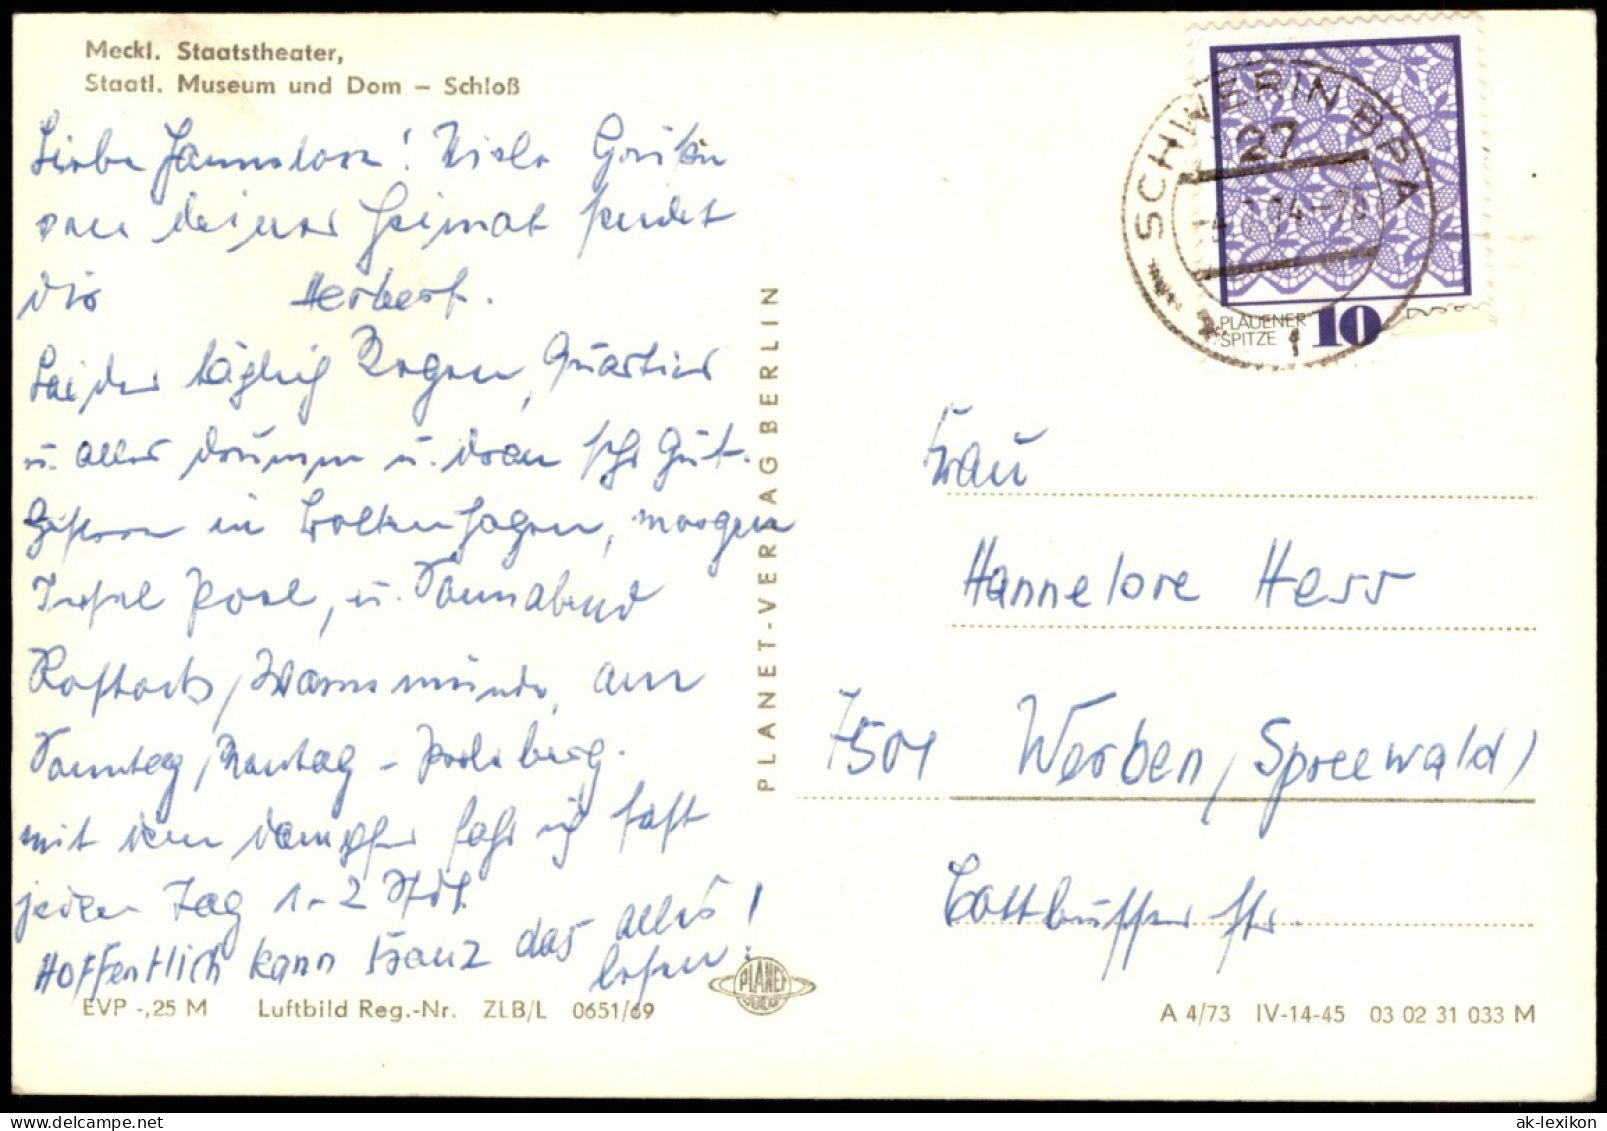 Meckl. Staatstheater,
Staatl. Museum und Dom – Schloß
Liebe Hannelore! Viele Grüße
von deiner Heimat sendet
dir Herbert.
Leider täglich Regen, Quartier
u. alles drumm u. dran sehr gut.
Gestern in Boltenhagen, morgen
Insel Poel, u. Sonnabend
Rostock, Warnemünde, am
Sonntag, Montag –
mit dem Dampfer fahr ich fast
jeden Tag 1-2 Std.
Hoffentlich kann Franz das alles
lesen!
EVP -,25 M Luftbild Reg.-Nr. ZLB/L 0651/69
PLANET-VERLAG BERLIN
PLANET
SCHWERIN BPA
27
PLAUENER
SPITZE 10
Frau
Hannelore Herr
7501 Werben, (Spreewald)
Cottbusser Str.
A 4/73 IV-14-45 03 02 31 033 M
ak-lexikon